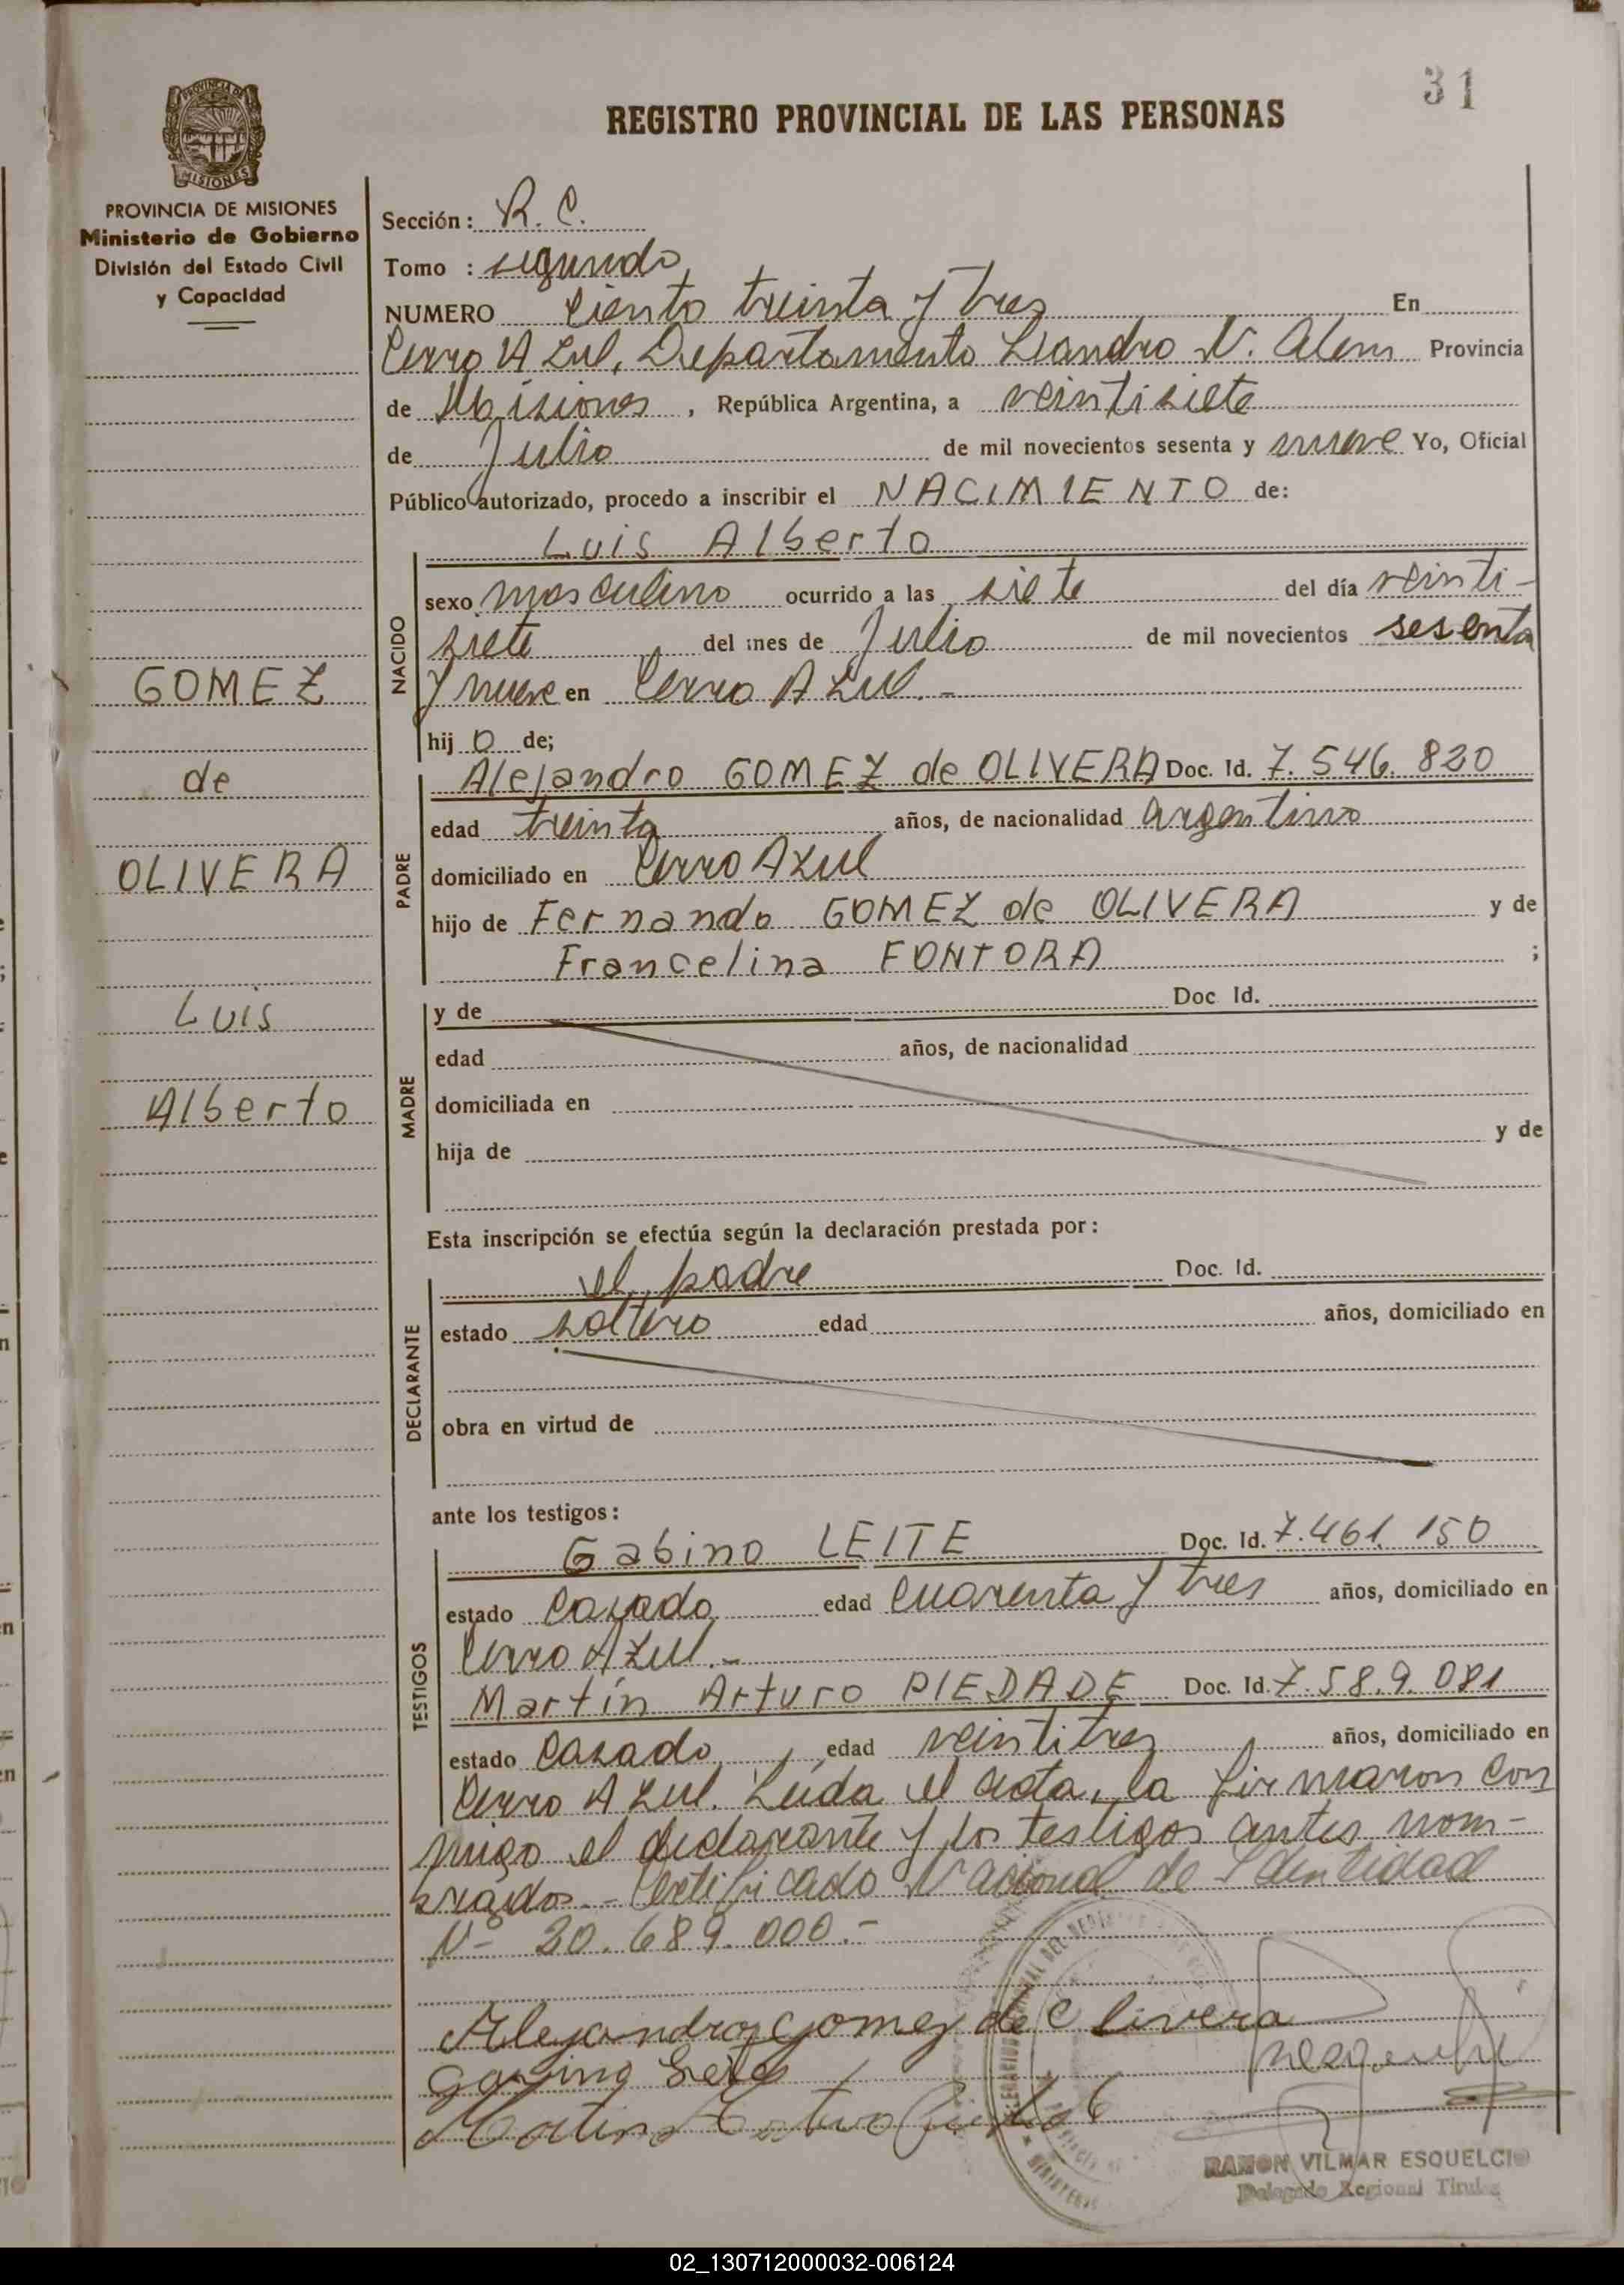 31
REGISTRO PROVINCIAL DE LAS PERSONAS
PROVINCIA DE
MISIONES
PROVINCIA DE MISIONES
Ministerio de Gobierno
División del Estado Civil
y Capacidad
GOMEZ
de
OLIVERA
Luis
Alberto
Sección: R. C.
Tomo : segundo
NUMERO ciento treinta y tres En
Cerro Azul, Departamento Leandro N. Alem Provincia
de Misiones, República Argentina, a veintisiete
de Julio de mil novecientos sesenta y nueve Yo, Oficial
Público autorizado, procedo a inscribir el NACIMIENTO de:
Luis Alberto
NACIDO
sexo masculino ocurrido a las siete del día veinti-
siete del mes de Julio de mil novecientos sesenta
y nueve en Cerro Azul.-
hij o de;
PADRE
Alejandro GOMEZ de OLIVERA Doc. Id. 7.546.820
edad treinta años, de nacionalidad argentino
domiciliado en Cerro Azul
hijo de Fernando GOMEZ de OLIVERA y de
Francelina FONTORA ;
MADRE
y de Doc Id.
edad años, de nacionalidad
domiciliada en
hija de y de
Esta inscripción se efectúa según la declaración prestada por:
DECLARANTE
el padre Doc. Id.
estado soltero edad años, domiciliado en
obra en virtud de
ante los testigos:
TESTIGOS
Gabino LEITE Doc. Id. 7.461.150
estado casado edad cuarenta y tres años, domiciliado en
Cerro Azul.-
Martín Arturo PIEDADE Doc. Id. 7.589.081
estado casado, edad veintitres años, domiciliado en
Cerro Azul. Leída el acta, la firmaron con
migo el declarante y los testigos antes nom-
brados.- Certificado Nacional de Identidad
Nº 20.689.000.-
Alejandro gomez de Olivera
Martin Arturo
RAMON VILMAR ESQUELCIO
Delegado Regional Titular
02_130712000032-006124